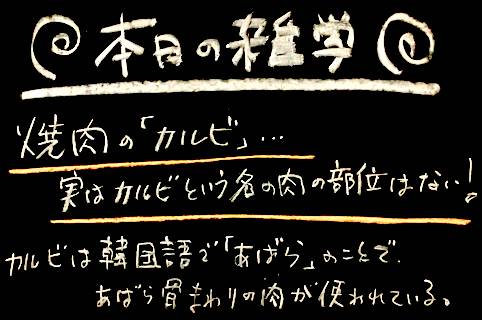 本日の雑学
焼肉の「カルビ」…
実はカルビという名の肉の部位はない!
カルビは韓国語で「あばら」のことで、
あばら骨まわりの肉が使われている。